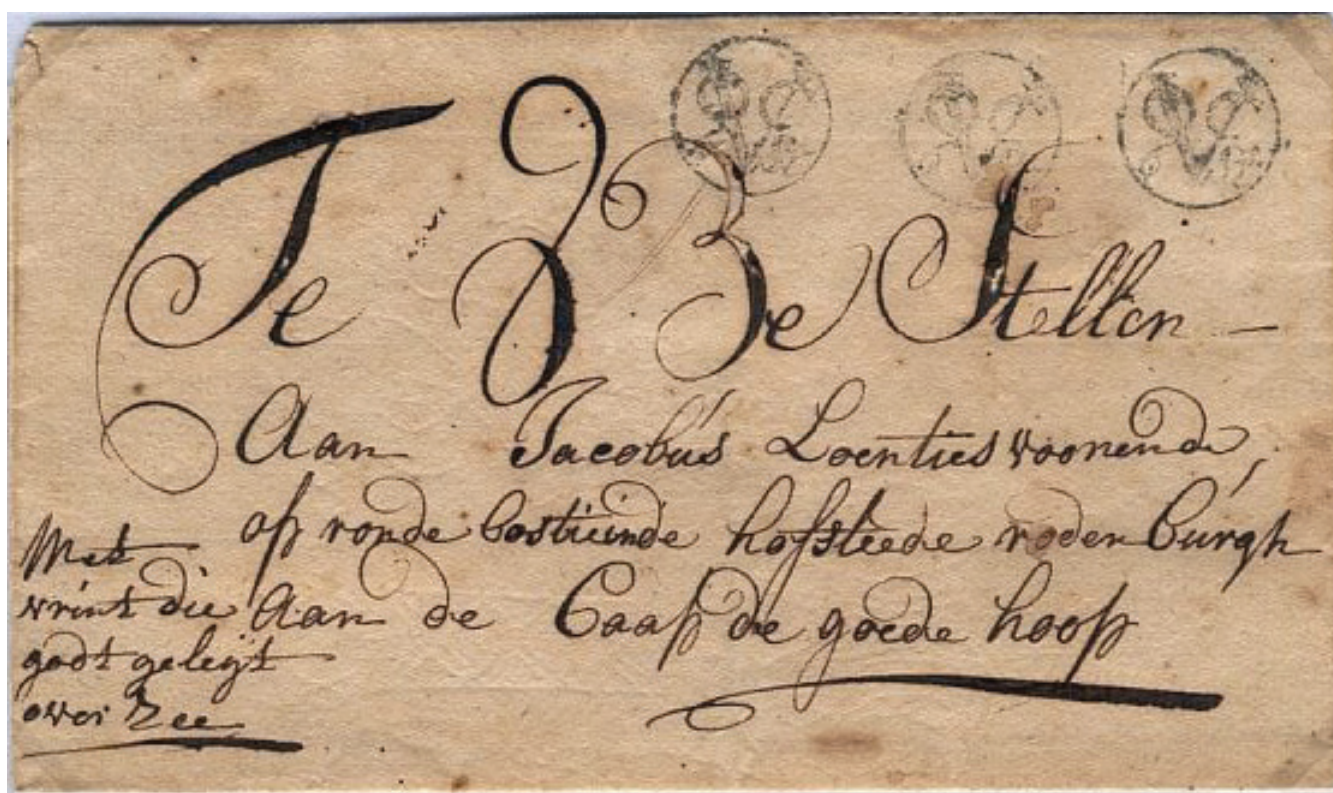 Te Be Stellen
Aan Jacobus Loenties woonende
op ronde bostieinde hofsteede roodenburgh
Aan de Caap de goede hoop
Met
vrint die
godt geleijt
over Zee